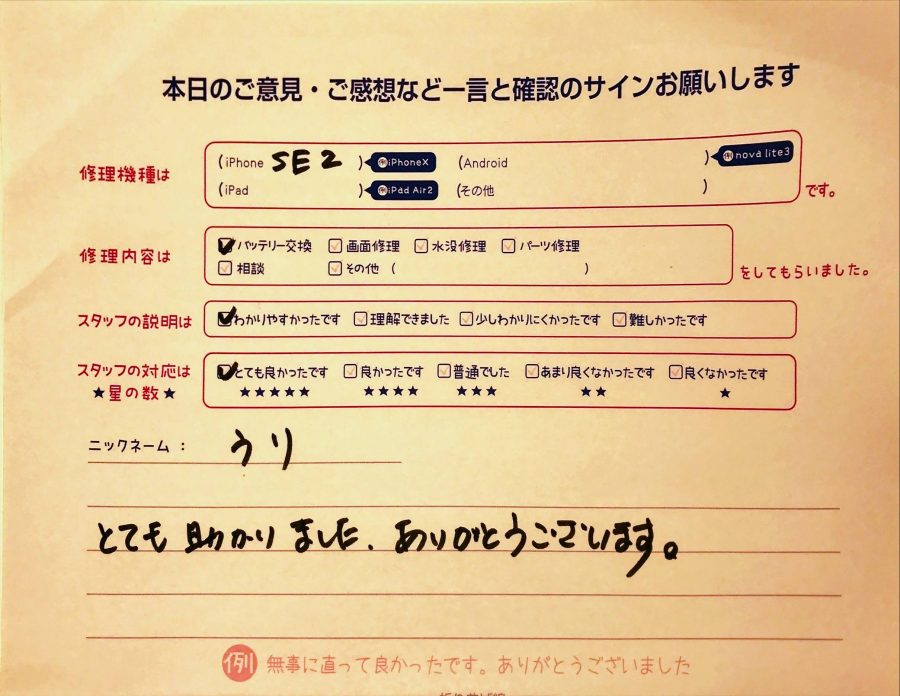 本日のご意見・ご感想など一言と確認のサインお願いします
修理機種は
(iPhone SE2 ) 例iPhoneX (Android ) 例nova lite3
(iPad ) 例iPad Air2 (その他 )
です。
修理内容は
バッテリー交換 画面修理 水没修理 パーツ修理
相談 その他 ( )
をしてもらいました。
スタッフの説明は わかりやすかったです 理解できました 少しわかりにくかったです 難しかったです
スタッフの対応は とても良かったです 良かったです 普通でした あまり良くなかったです 良くなかったです
★星の数★ ★★★★★ ★★★★ ★★★ ★★ ★
ニックネーム： うり
とても助かりました、ありがとうございます。
例 無事に直って良かったです。ありがとうございました